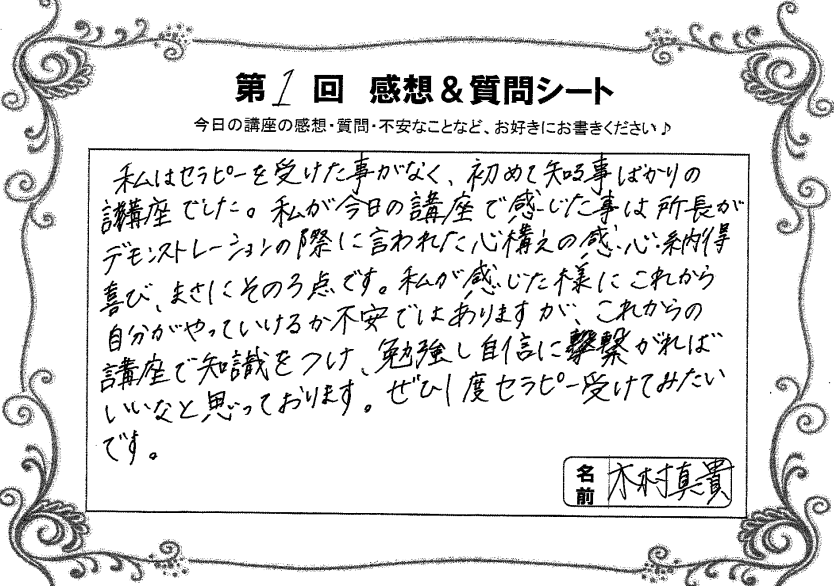 第1回 感想&質問シート
今日の講座の感想・質問・不安なことなど、お好きにお書きください♪
私はセラピーを受けた事がなく、初めて知る事ばかりの
講座でした。私が今日の講座で感じた事は所長が
デモンストレーションの際に言われた心構えの感心・納得
喜び、まさにその3点です。私が感じた様にこれから
自分がやっていけるか不安ではありますが、これからの
講座で知識をつけ、勉強し自信に繋がれば
いいなと思っております。ぜひ1度セラピー受けてみたい
です。
名前 木村真貴